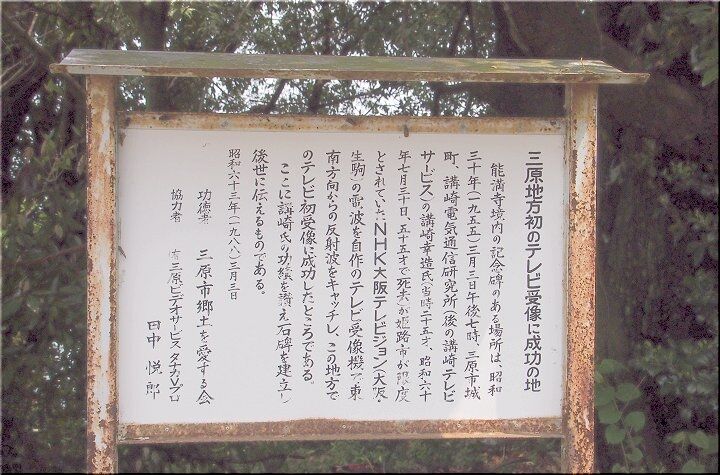 三原地方初のテレビ受像に成功の地
能満寺境内の記念碑のある場所は、昭和
三十年(一九五五)三月三日午後七時、三原市城
町、講崎電気通信研究所(後の講崎テレビ
サービス)の講崎幸造氏(当時二十五才、昭和六十
年七月三十日、五十五才で死去)が姫路市が限度
とされていた、NHK大阪テレビジョン(大阪
生駒)の電波を自作のテレビ受像機で東
南方向からの反射波をキャッチし、この地方で
のテレビ初受像に成功したところである。
ここに講崎氏の功績を讃え石碑を建立し
後世に伝えるものである。
昭和六十三年(一九八八)三月三日
功徳者 三原市郷土を愛する会
協力者 有三原ビデオサービス タナカVプロ
田中悦郎